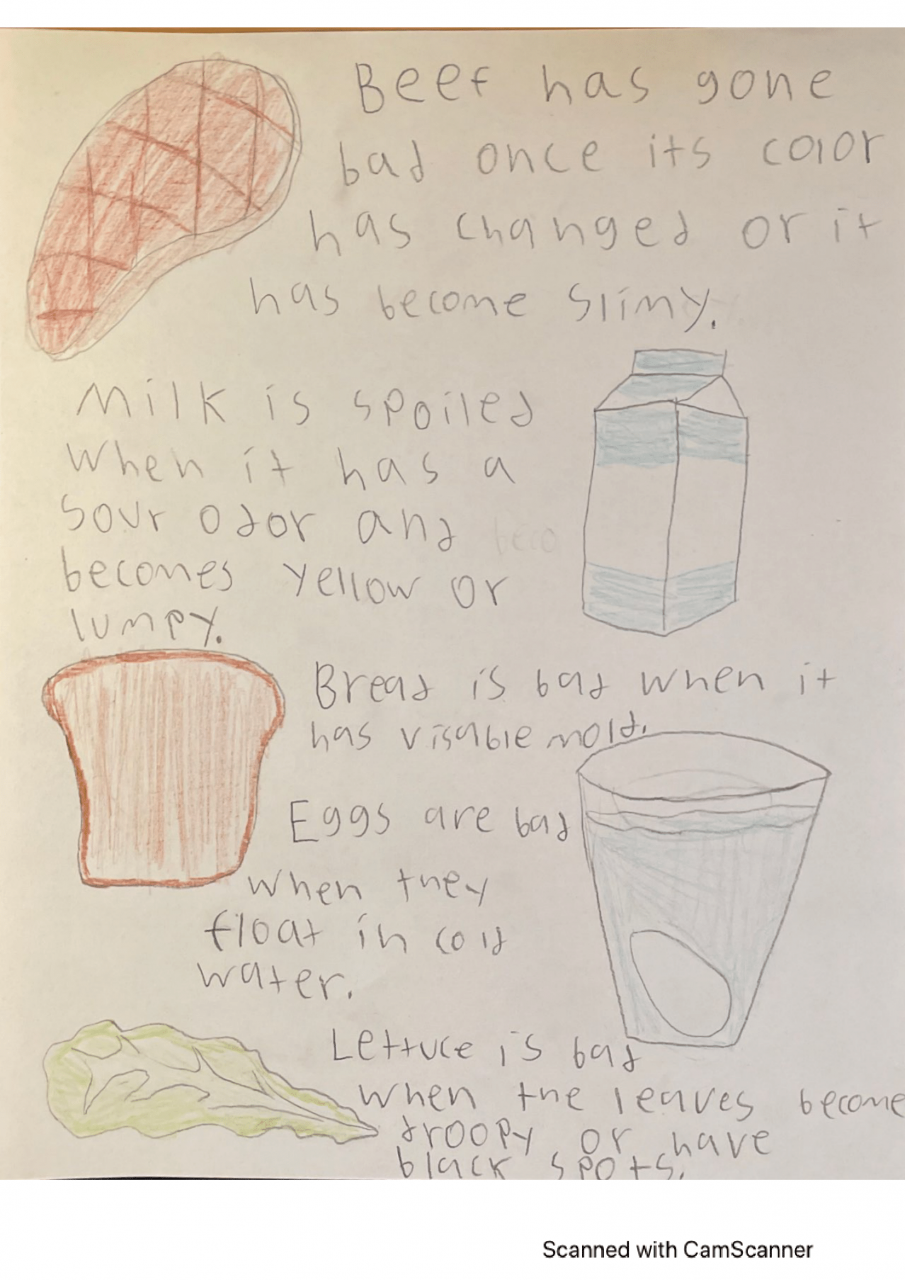 Beef has gone
bad once its color
has changed or it
has become slimy.
Milk is spoiled
when it has a
sour odor and beco
becomes yellow or
lumpy.
Bread is bad when it
has visable mold.
Eggs are bad
when they
float in cold
water.
Lettuce is bad
when the leaves become
droopy or have
black spots.
Scanned with CamScanner